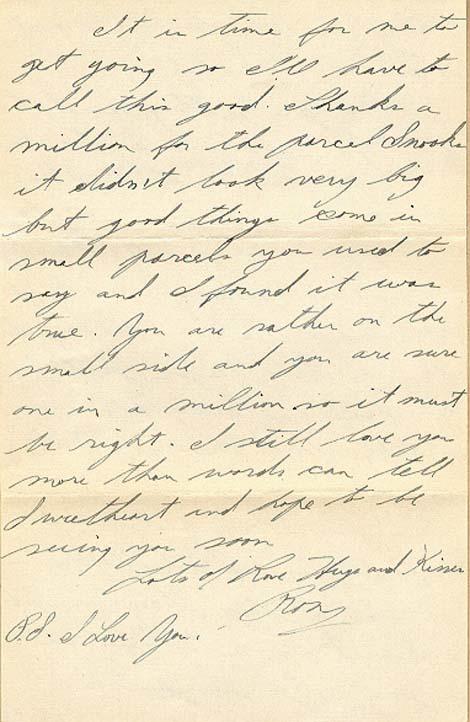 It is time for me to
get going so I'll have to
call this good. Thanks a
million for the parcel Snooks
it didn't look very big
but good things come in
small parcels you used to
say and I found it was
true. You are rather on the
small side and you are sure
one in a million so it must
be right. I still love you
more than words can tell
Sweetheart and hope to be
seeing you soon
Lots of Love Hugs and Kisses
P.S. I Love You.